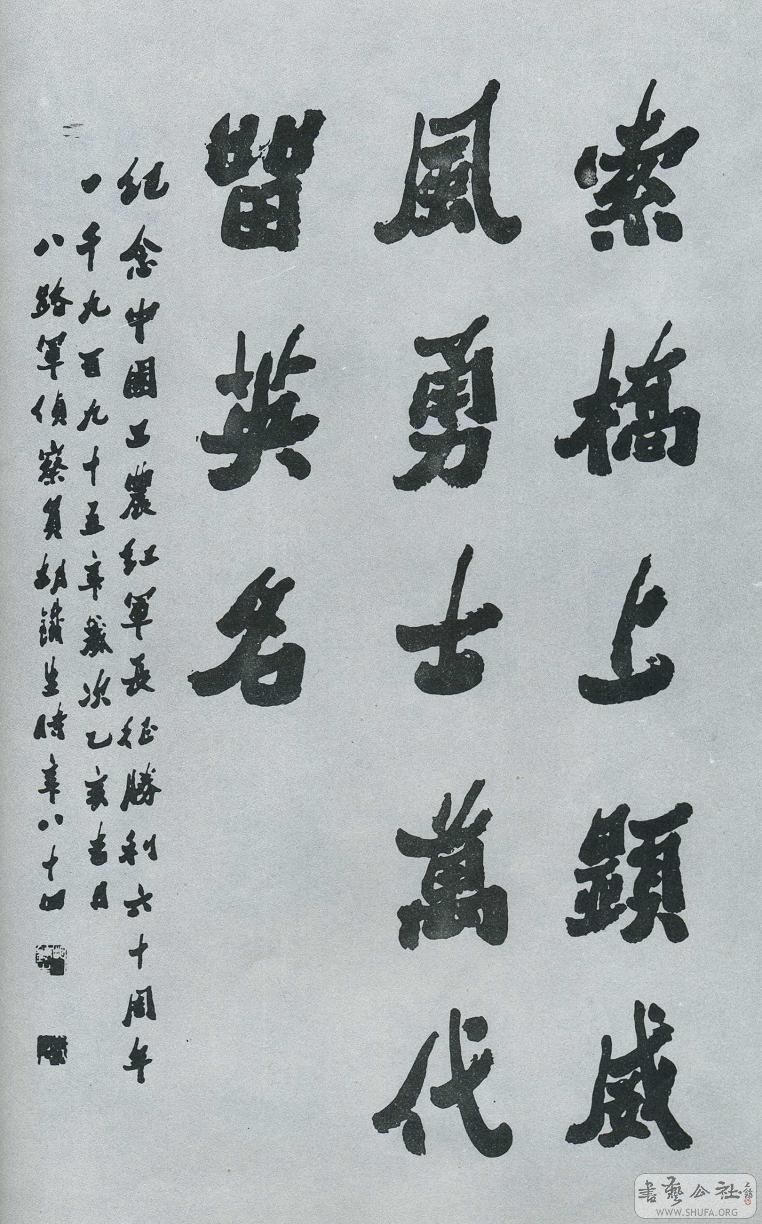 索橋上顯威
風勇士萬代
留英名
紀念中國工農紅軍長征勝利六十周年
一千九百九十五年歲次乙亥月
八路軍偵察員胡鐵生時年八十四
書藝公社
WWW.SHUFA.ORG